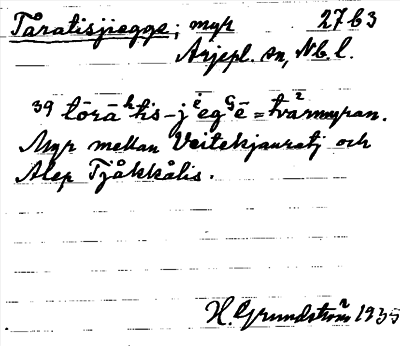 Tåratisjiegge; myr 27 b 3
Arjepl. sn, Nb. l.
39 tōrāʰtis-jⁱegᵍē = tvärmyran.
Myr mellan Veitekjauratj och
Alep Tjåkkålis.
H. Grundström 1935